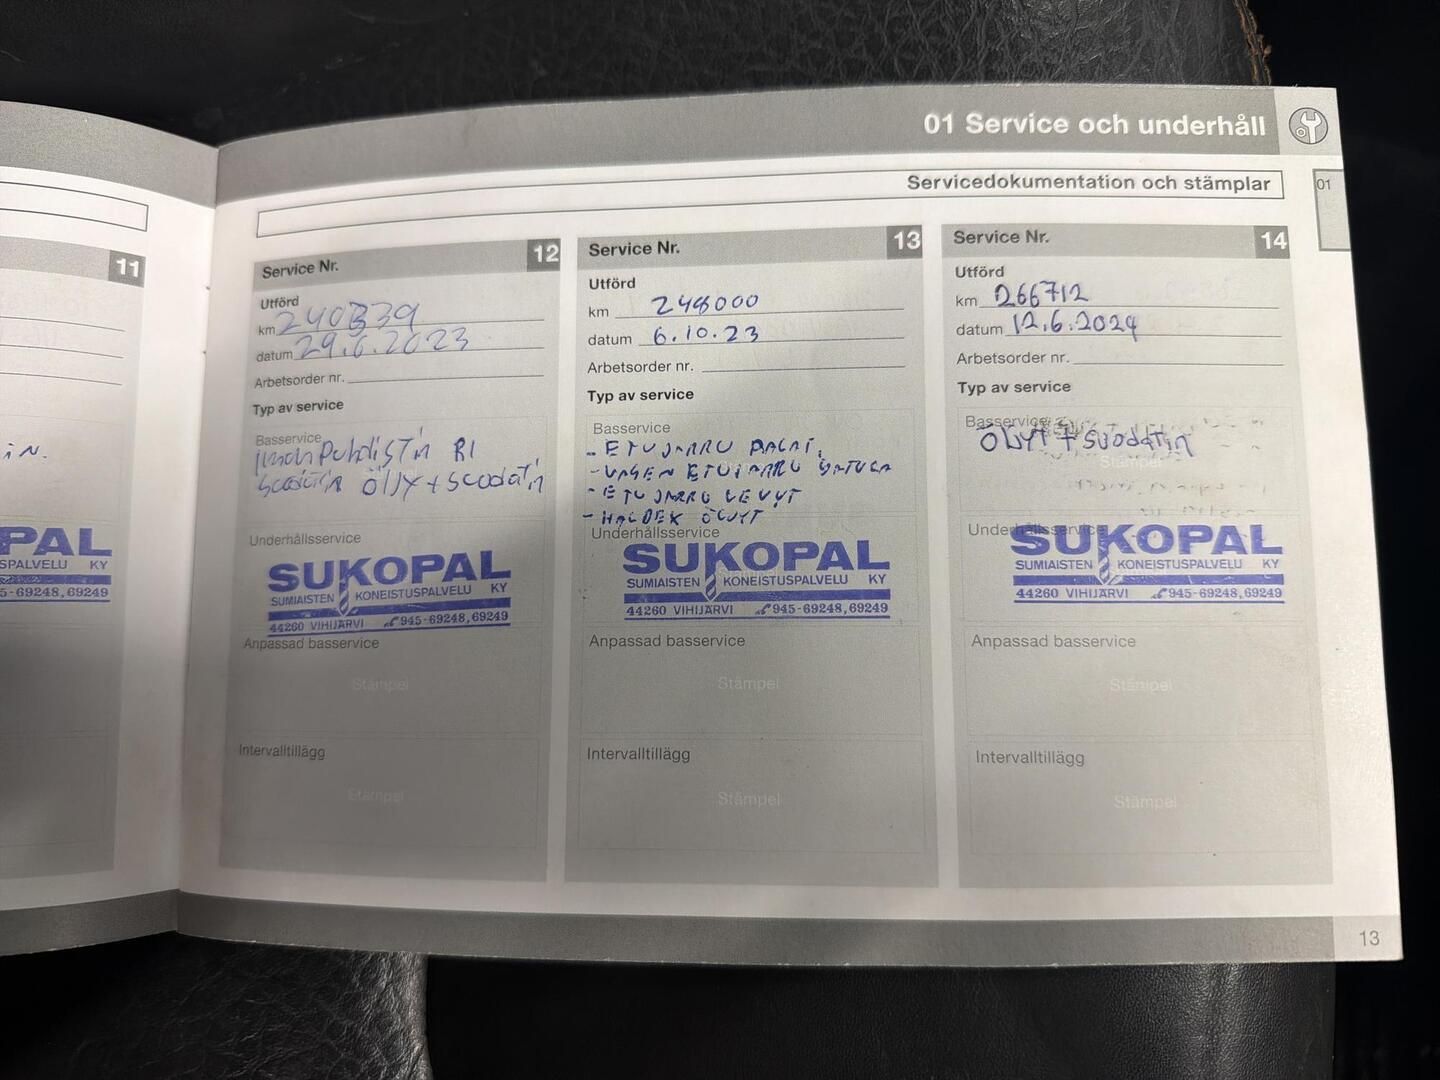 01 Service och underhåll
Servicedokumentation och stämplar
01
11
in.
PAL
SPALVELU KY
5-69248,69249
Service Nr. 12
Utförd
km 240339
datum 29.6.2023
Arbetsorder nr.
Typ av service
Basservice
ilmanpuhdistin RI
suodatin Öljy + suodatin
Underhållsservice
SUKOPAL
SUMIAISTEN KONEISTUSPALVELU KY
44260 VIHIJÄRVI 945-69248,69249
Anpassad basservice
Stämpel
Intervalltillägg
Stämpel
Service Nr. 13
Utförd
km 248000
datum 6.10.23
Arbetsorder nr.
Typ av service
Basservice
- ETUJARRU PALAT,
- VASEN ETUJARRU SATULA
- ETUJARRU LEVYT
- HALDEX ÖLJYT
Underhållsservice
SUKOPAL
SUMIAISTEN KONEISTUSPALVELU KY
44260 VIHIJÄRVI 945-69248,69249
Anpassad basservice
Stämpel
Intervalltillägg
Stämpel
Service Nr. 14
Utförd
km 266712
datum 12.6.2024
Arbetsorder nr.
Typ av service
Basservice
ÖLJYT + suodatin
Stämpel
Underhållsservice
SUKOPAL
SUMIAISTEN KONEISTUSPALVELU KY
44260 VIHIJÄRVI 945-69248,69249
Anpassad basservice
Stämpel
Intervalltillägg
Stämpel
13